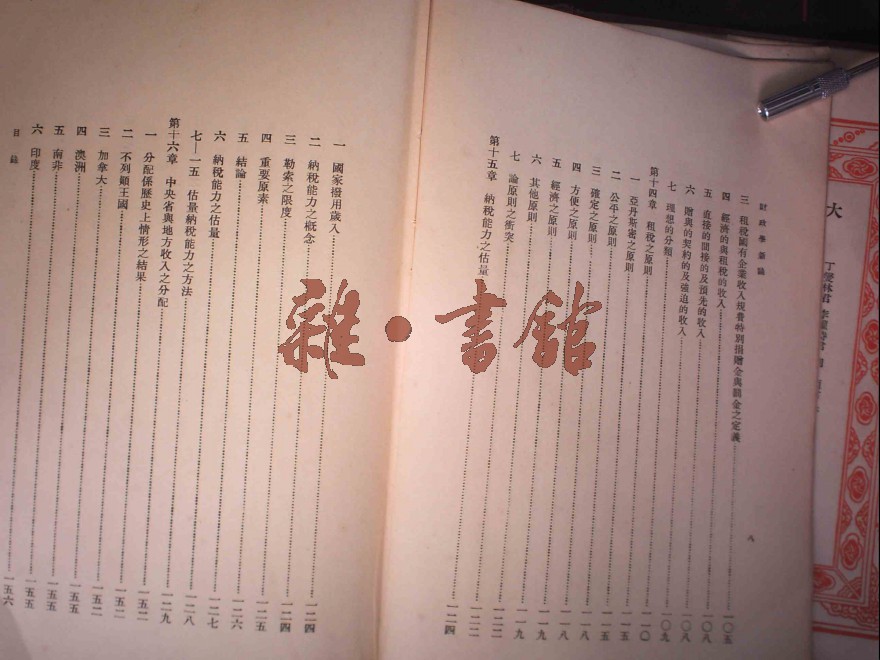 大
丁燮林君
財政學新論
三　租稅國有企業收入規費特別捐贈金與罰金之定義……一〇五
四　經濟的與租稅的收入……一〇八
五　直接的間接的及預先的收入……一〇八
六　贈與的契約的及強迫的收入……一〇九
七　理想的分類……一一〇
第十四章　租稅之原則……一一五
一　亞丹斯密之原則……一一五
二　公平之原則……一一八
三　確定之原則……一一八
四　方便之原則……一一九
五　經濟之原則……一一九
六　其他原則……一二二
七　論原則之衝突……一二二
第十五章　納稅能力之估量……一二四
八
一　國家撥用歲入……一二四
二　納稅能力之概念……一二四
三　勒索之限度……一二五
四　重要原素……一二六
五　結論……一二七
六　納稅能力之估量……一二八
七—一五　估量納稅能力之方法……一二九
第十六章　中央省與地方收入之分配……一五二
一　分配係歷史上情形之結果……一五二
二　不列顛王國……一五二
三　加拿大……一五五
四　澳洲……一五五
五　南非……一五五
六　印度……一五六
目錄
雜·書館